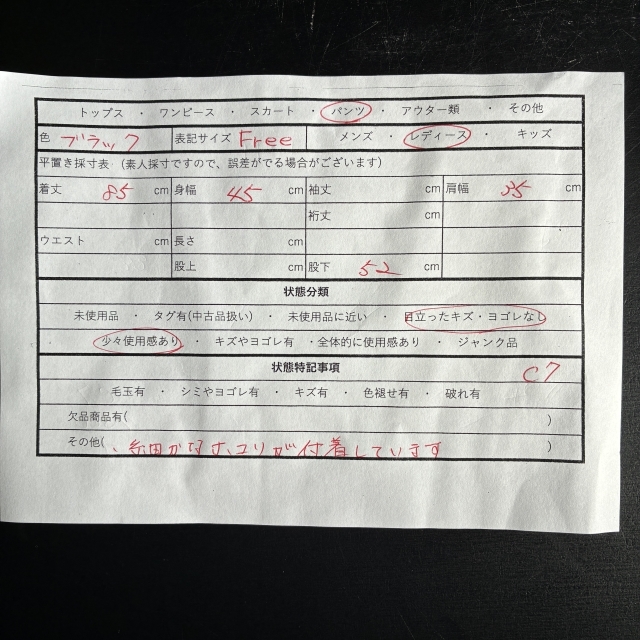 トップス ・ ワンピース ・ スカート ・ パンツ ・ アウター類 ・ その他
色 ブラック 表記サイズ Free メンズ ・ レディース ・ キッズ
平置き採寸表 (素人採寸ですので、誤差がでる場合がございます)
着丈 85 cm 身幅 45 cm 袖丈 cm 肩幅 35 cm
裄丈 cm
ウエスト cm 長さ cm
股上 cm 股下 52 cm
状態分類
未使用品 ・ タグ有(中古品扱い) ・ 未使用品に近い ・ 目立ったキズ・ヨゴレなし
少々使用感あり ・ キズやヨゴレ有 ・全体的に使用感あり ・ ジャンク品
状態特記事項 C7
毛玉有 ・ シミやヨゴレ有 ・ キズ有 ・ 色褪せ有 ・ 破れ有
欠品商品有( )
その他( ・細かなホコリが付着しています )